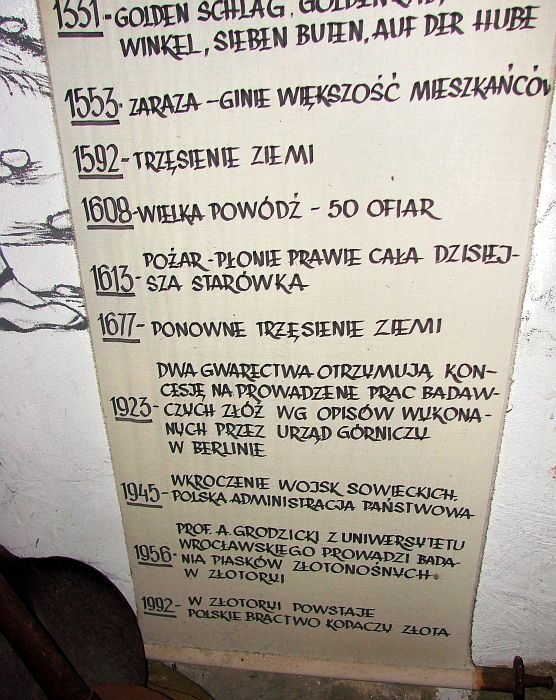 1551- GOLDEN SCHLAG,
WINKEL, SIEBEN BUTEN, AUF DER HUBE
1553- ZARAZA – GINIE WIĘKSZOŚĆ MIESZKAŃCÓW
1592- TRZĘSIENIE ZIEMI
1608- WIELKA POWÓDŹ – 50 OFIAR
1613- POŻAR - PŁONIE PRAWIE CAŁA DZISIEJ-
SZA STARÓWKA
1677- PONOWNE TRZĘSIENIE ZIEMI
DWA GWARECTWA OTRZYMUJĄ KON-
CESJĘ NA PROWADZENE PRAC BADAW-
1923- CZYCH ZŁÓŻ WG OPISÓW WYKONA-
NYCH PRZEZ URZĄD GÓRNICZY
W BERLINIE
1945- WKROCZENIE WOJSK SOWIECKICH.
POLSKA ADMINISTRACJA PAŃSTWOWA
PROF. A. GRODZICKI Z UNIWERSYTETU
WROCŁAWSKIEGO PROWADZI BADA-
1956- NIA PIASKÓW ZŁOTONOŚNYCH
W ZŁOTORYI
1992- W ZŁOTORYI POWSTAJE
POLSKIE BRACTWO KOPACZY ZŁOTA